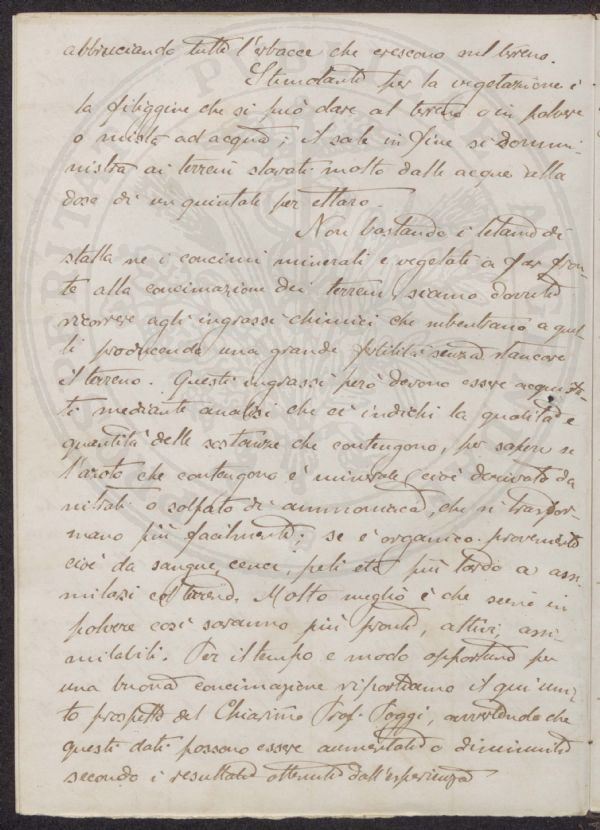 abbruciando tutte l'erbacce che crescono sul terreno.
Stimolante per la vegetazione è
la filiggine che si può dare al terreno o in polvere
o mista ad acqua; il sale in fine si sommi-
nistra ai terreni slavati molto dalle acque alla
dose di un quintale per ettaro.
Non bastando i letami di
stalla ne i concimi minerali e vegetali a far fron-
te alla concimazione dei terreni, siamo dovuti
ricorrere agli ingrassi chimici che subentrano a quel-
li producendo una grande fertilità senza stancare
il terreno. Questi ingrassi però devono essere acquista-
ti mediante analisi che ci indichi la qualità e
quantità delle sostanze che contengono, per sapere se
l'azoto che contengono è minerale cioè derivato da
nitrati o solfato di ammoniaca, che si trasfor-
mano più facilmente; se è organico proveniente
cioè da sangue, cenci, peli etc più tardo a assi-
milarsi col terreno. Molto meglio è che sieno in
polvere così saranno più pronti, attivi, assi-
milabili. Per il tempo e modo opportuno per
una buona concimazione riportiamo il qui uni-
to prospetto del Chiarimo Prof. Poggi, avvertendo che
questi dati possono essere aumentati o diminuiti
secondo i resultati ottenuti dall'esperienza